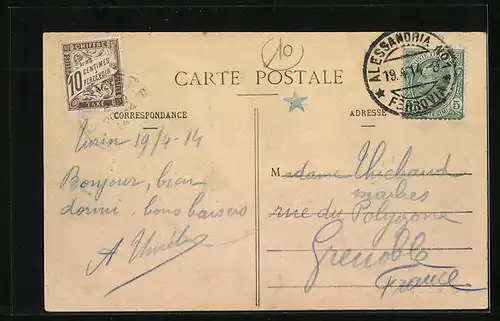 CHIFFRE
10
CENTIMES
A
PERCEVOIR
TAXE
10
ALESSANDRIA
19.4.14
FERROVIA
5
CARTE POSTALE
CORRESPONDANCE
ADRESSE
Turin 19/4-14
Bonjour, bien
dormi. bons baisers
A
Madame Thiébaud
rue du Polygone
Grenoble
France